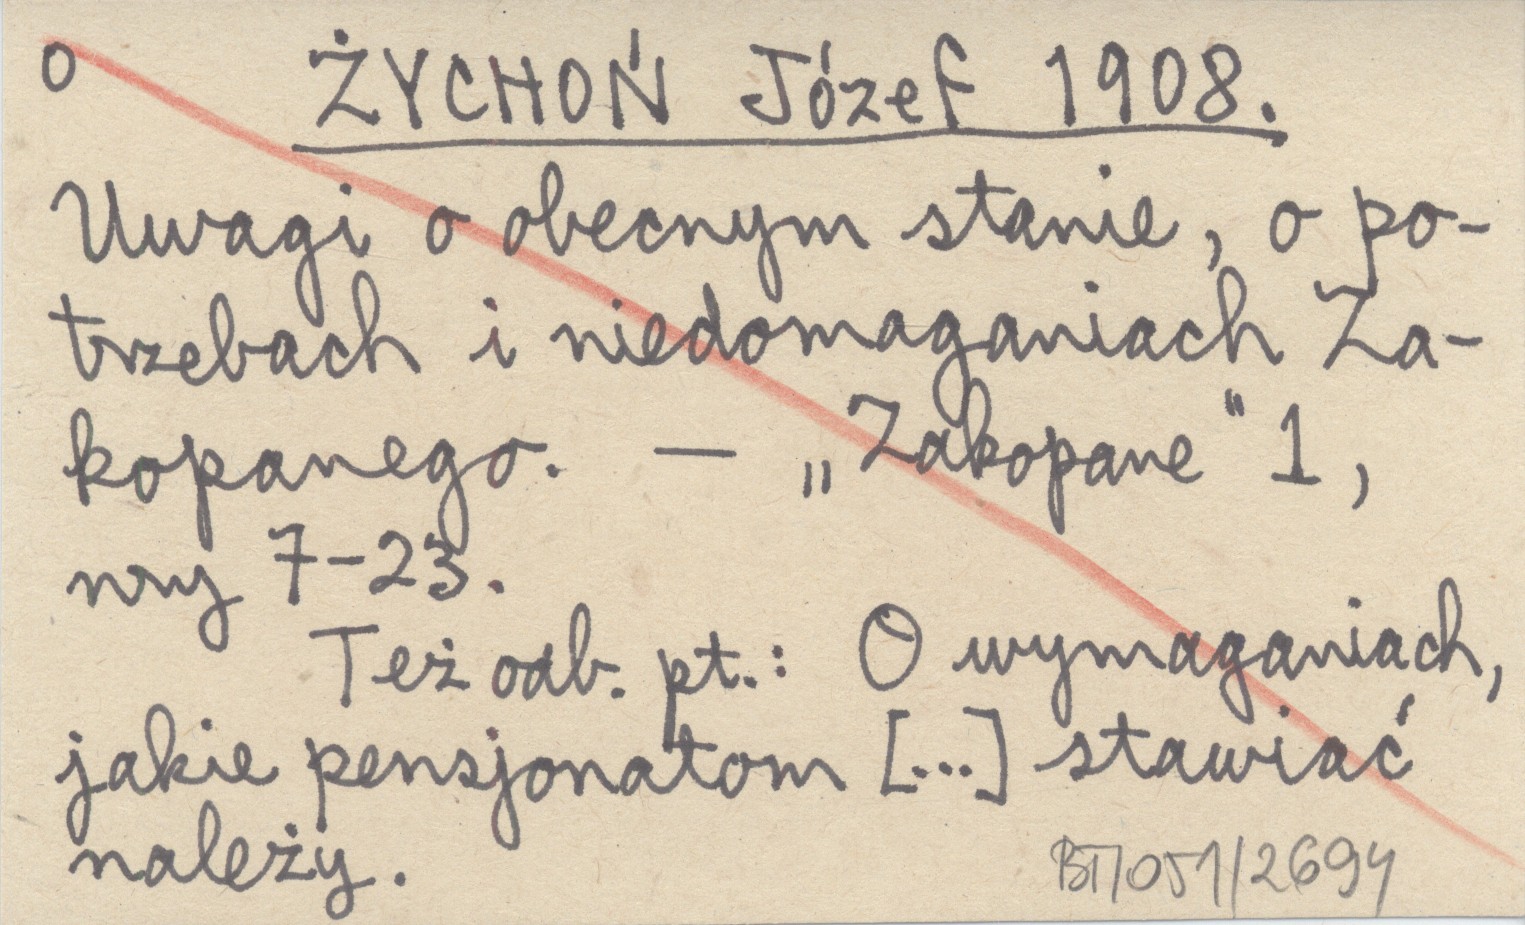 o ŻYCHOŃ Józef 1908.
Uwagi o obecnym stanie, o po-
trzebach i niedomaganiach Za-
kopanego. — „Zakopane" 1,
nry 7-23.
Też odb. pt.: O wymaganiach,
jakie pensjonatom [...] stawiać
należy.
BT/051/2694